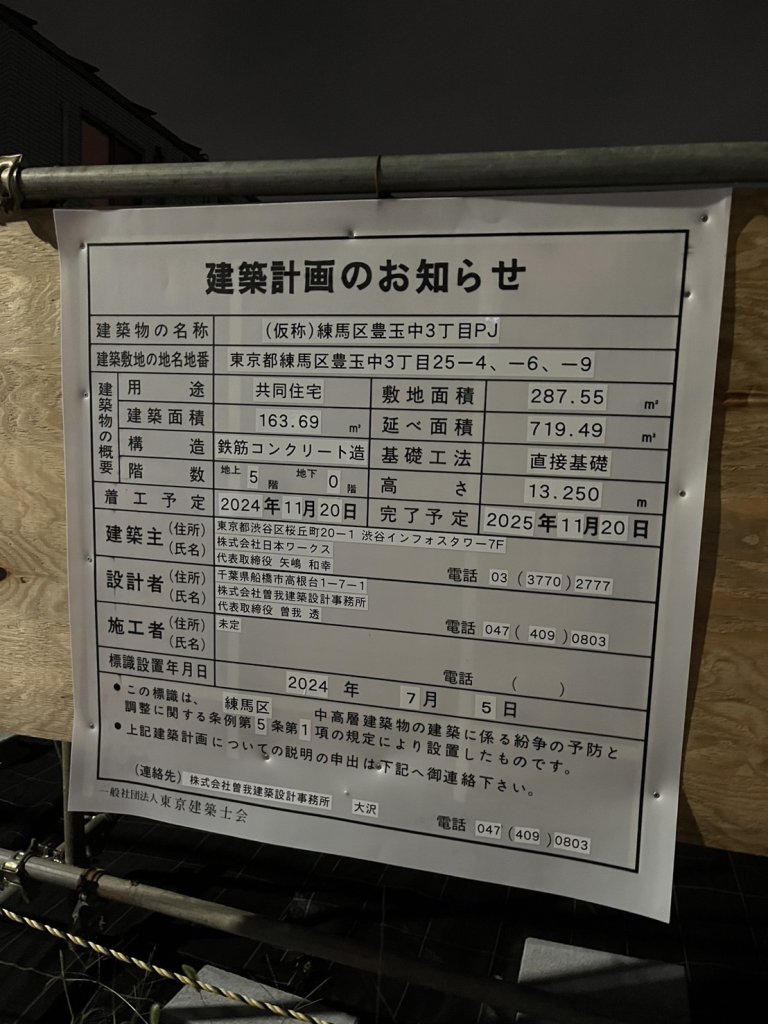 建築計画のお知らせ
建築物の名称 (仮称)練馬区豊玉中3丁目PJ
建築敷地の地名地番 東京都練馬区豊玉中3丁目25ー4、ー6、ー9
建築物の概要
用途 共同住宅 敷地面積 287.55 ㎡
建築面積 163.69 ㎡ 延べ面積 719.49 ㎡
構造 鉄筋コンクリート造 基礎工法 直接基礎
階数 地上 5 階 地下 0 階 高さ 13.250 m
着工予定 2024年11月20日 完了予定 2025年11月20日
建築主 (住所) 東京都渋谷区桜丘町20ー1 渋谷インフォスタワー7F
(氏名) 株式会社日本ワークス
代表取締役 矢嶋 和幸 電話 03(3770)2777
設計者 (住所) 千葉県船橋市高根台1ー7ー1
(氏名) 株式会社曽我建築設計事務所
代表取締役 曽我 透 電話 047(409)0803
施工者 (住所) 未定
(氏名) 電話 ( )
標識設置年月日 2024 年 7月 5日
●この標識は、 練馬区 中高層建築物の建築に係る紛争の予防と
調整に関する条例第5条第1項の規定により設置したものです。
●上記建築計画についての説明の申出は下記へ御連絡下さい。
(連絡先) 株式会社曽我建築設計事務所 大沢 電話 047(409)0803
一般社団法人東京建築士会